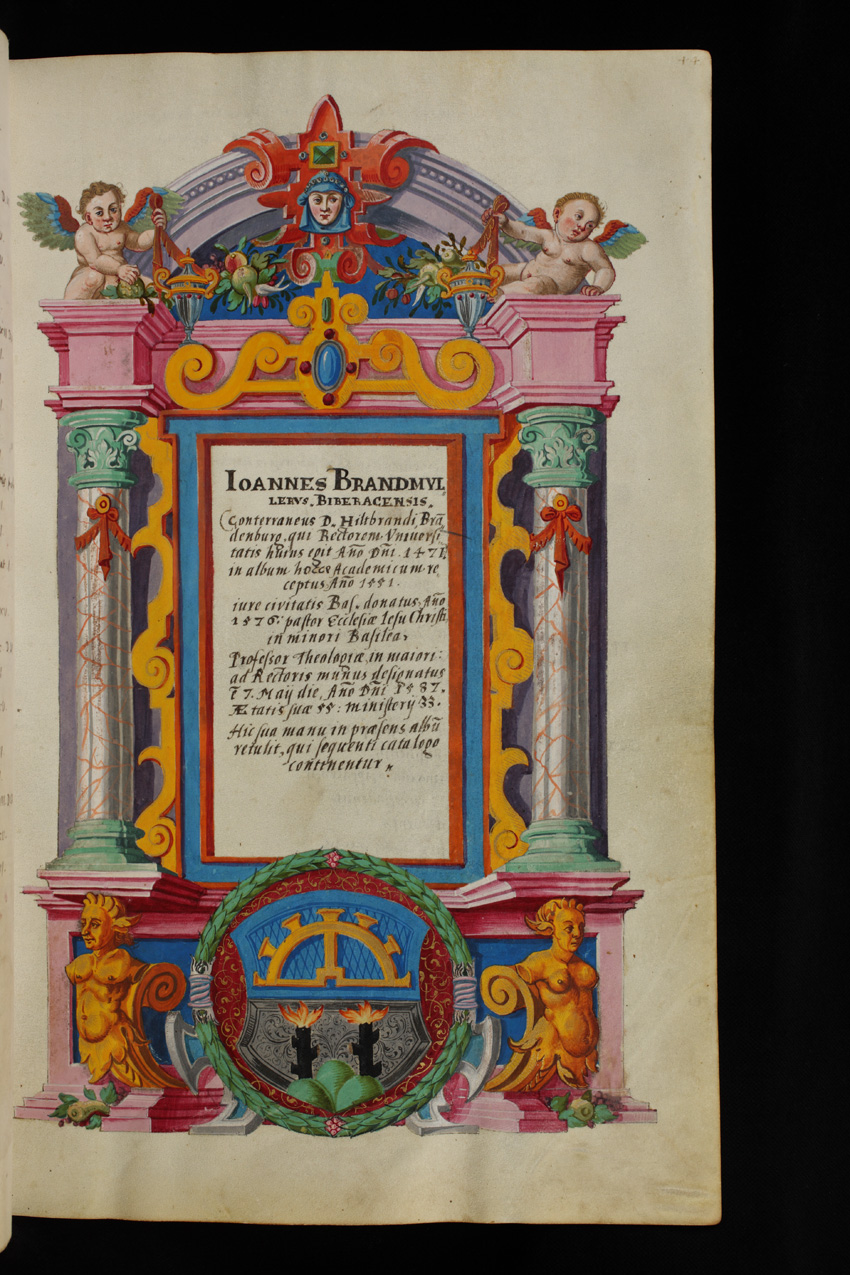 IOANNES BRANDMVL
LERVS. BIBERACENSIS.
(Conterraneus D. Hiltbrandi, Brā
denburg, qui Rectorem Vniuersi
tatis huius egit Año Dñi. 1471)
in album hocce Academicum re
ceptus. Año 1551.
iure civitatis Bas. donatus, Año
1576. pastor Ecclesiæ Iesu Christi
in minori Basilea,
Professor Theologiæ, in maiori:
ad Rectoris munus designatus
Maij die, Año Dñi 1587.
Ætatis suæ 55: ministerij 33.
Hic sua manu in præsens albū
retulit, qui sequenti catalogo
continentur.